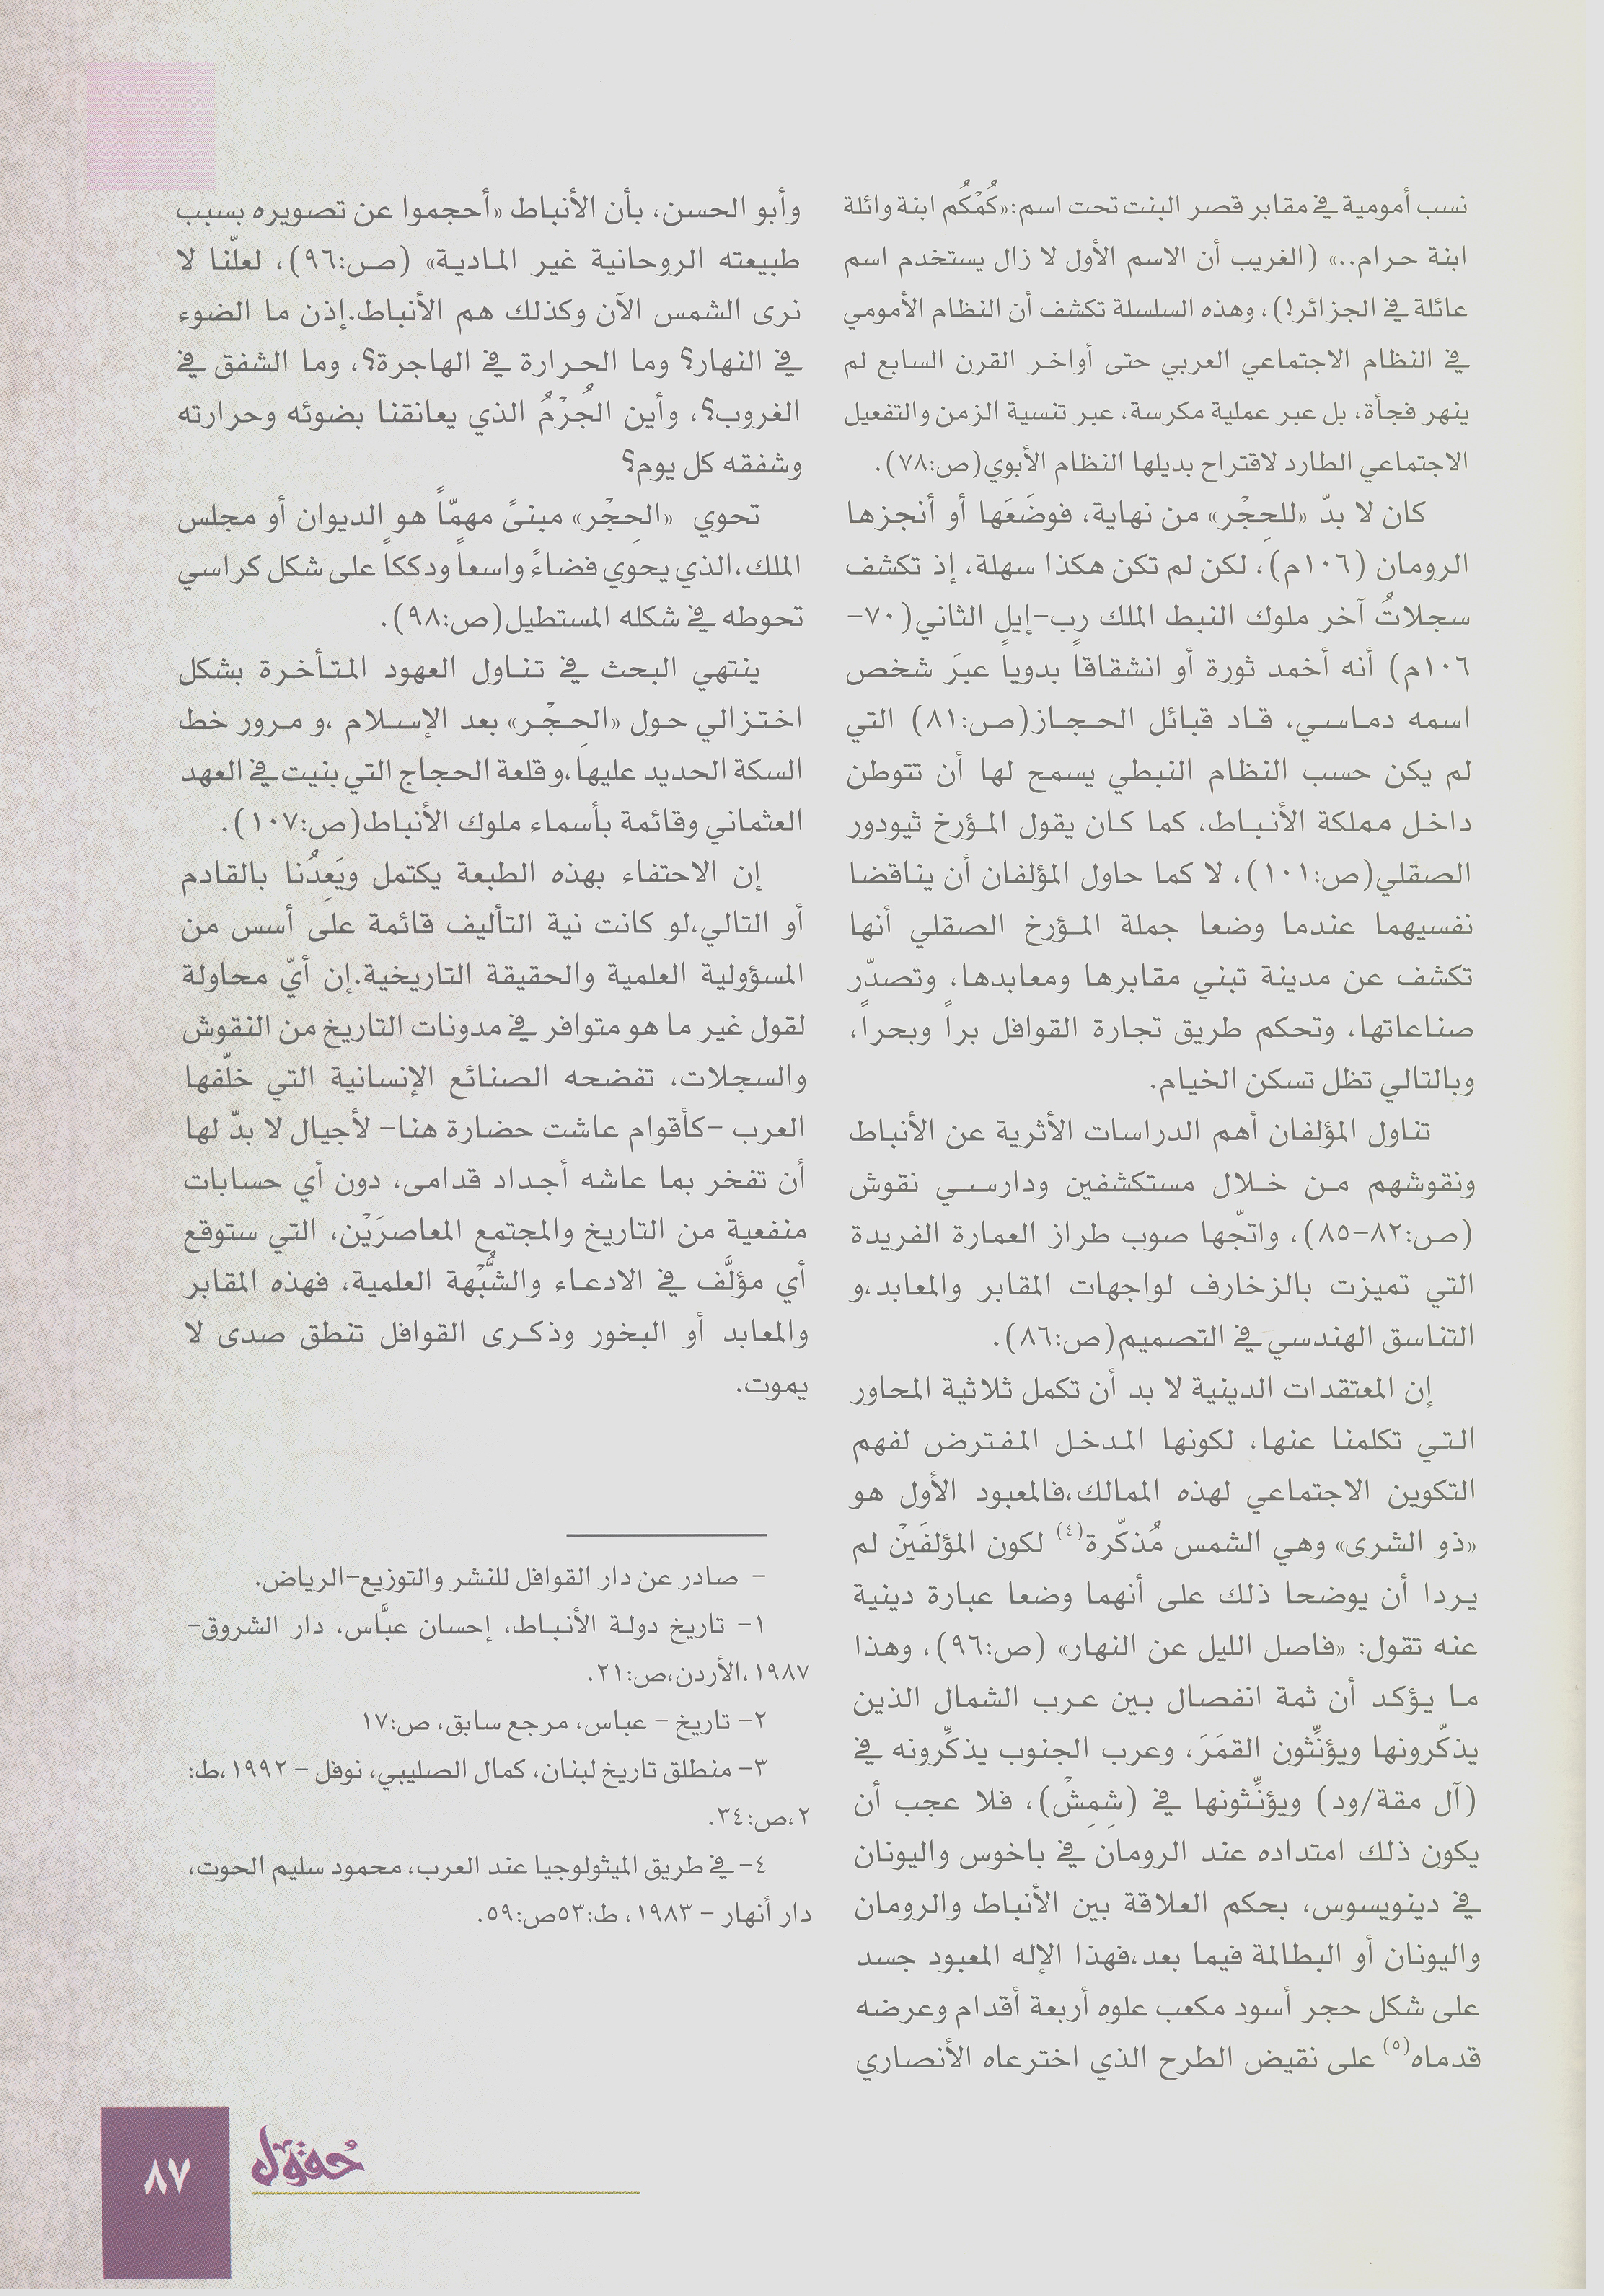 نسب أمومية في مقابر قصر البنت تحت اسم:«كُمْكُم ابنة وائلة
ابنة حرام..» (الغريب أن الاسم الأول لا زال يستخدم اسم
عائلة في الجزائر!)، وهذه السلسلة تكشف أن النظام الأمومي
في النظام الاجتماعي العربي حتى أواخر القرن السابع لم
ينهر فجأة، بل عبر عملية مكرسة، عبر تنسية الزمن والتفعيل
الاجتماعي الطارد لاقتراح بديلها النظام الأبوي(ص:٧٨).
كان لا بدّ «للحِجْر» من نهاية، فوضَعَها أو أنجزها
الرومان (١٠٦م)، لكن لم تكن هكذا سهلة، إذ تكشف
سجلاتُ آخر ملوك النبط الملك رب-إيل الثاني(٧٠-
١٠٦م) أنه أخمد ثورة أو انشقاقاً بدوياً عبرَ شخص
اسمه دماسي، قاد قبائل الحجاز(ص:٨١) التي
لم يكن حسب النظام النبطي يسمح لها أن تتوطن
داخل مملكة الأنباط، كما كان يقول المؤرخ ثيودور
الصقلي(ص:١٠١)، لا كما حاول المؤلفان أن يناقضا
نفسيهما عندما وضعا جملة المؤرخ الصقلي أنها
تكشف عن مدينة تبني مقابرها ومعابدها، وتصدّر
صناعاتها، وتحكم طريق تجارة القوافل براً وبحراً،
وبالتالي تظل تسكن الخيام.
تناول المؤلفان أهم الدراسات الأثرية عن الأنباط
ونقوشهم من خلال مستكشفين ودارسي نقوش
(ص:٨٢-٨٥)، واتجّها صوب طراز العمارة الفريدة
التي تميزت بالزخارف لواجهات المقابر والمعابد،و
التناسق الهندسي في التصميم(ص:٨٦).
إن المعتقدات الدينية لا بد أن تكمل ثلاثية المحاور
التي تكلمنا عنها، لكونها المدخل المفترض لفهم
التكوين الاجتماعي لهذه الممالك،فالمعبود الأول هو
«ذو الشرى» وهي الشمس مُذكّرة(٤) لكون المؤلفَيْن لم
يردا أن يوضحا ذلك على أنهما وضعا عبارة دينية
عنه تقول: «فاصل الليل عن النهار» (ص:٩٦)، وهذا
ما يؤكد أن ثمة انفصال بين عرب الشمال الذين
يذكّرونها ويؤنِّثون القمَرَ، وعرب الجنوب يذكِّرونه في
(آل مقة/ود) ويؤنِّثونها في (شِمِسْ)، فلا عجب أن
يكون ذلك امتداده عند الرومان في باخوس واليونان
في دينويسوس، بحكم العلاقة بين الأنباط والرومان
واليونان أو البطالمة فيما بعد،فهذا الإله المعبود جسد
على شكل حجر أسود مكعب علوه أربعة أقدام وعرضه
قدماه(٥) على نقيض الطرح الذي اخترعاه الأنصاري
وأبو الحسن، بأن الأنباط «أحجموا عن تصويره بسبب
طبيعته الروحانية غير المادية» (ص:٩٦)، لعلّنا لا
نرى الشمس الآن وكذلك هم الأنباط.إذن ما الضوء
في النهار؟ وما الحرارة في الهاجرة؟، وما الشفق في
الغروب؟، وأين الجُرْمُ الذي يعانقنا بضوئه وحرارته
وشفقه كل يوم؟
تحوي «الحِجْر» مبنىً مهمّاً هو الديوان أو مجلس
الملك،الذي يحوي فضاءً واسعاً ودككاً على شكل كراسي
تحوطه في شكله المستطيل(ص:٩٨).
ينتهي البحث في تناول العهود المتأخرة بشكل
اختزالي حول «الحِجْر» بعد الإسلام ،و مرور خط
السكة الحديد عليها،و قلعة الحجاج التي بنيت في العهد
العثماني وقائمة بأسماء ملوك الأنباط(ص:١٠٧).
إن الاحتفاء بهذه الطبعة يكتمل ويَعِدُنا بالقادم
أو التالي،لو كانت نية التأليف قائمة على أسس من
المسؤولية العلمية والحقيقة التاريخية.إن أيّ محاولة
لقول غير ما هو متوافر في مدونات التاريخ من النقوش
والسجلات، تفضحه الصنائع الإنسانية التي خلّفها
العرب -كأقوام عاشت حضارة هنا- لأجيال لا بدّ لها
أن تفخر بما عاشه أجداد قدامى، دون أي حسابات
منفعية من التاريخ والمجتمع المعاصرَيْن، التي ستوقع
أي مؤلَّف في الادعاء والشُّبْهة العلمية، فهذه المقابر
والمعابد أو البخور وذكرى القوافل تنطق صدى لا
يموت.
- صادر عن دار القوافل للنشر والتوزيع-الرياض.
١- تاريخ دولة الأنباط، إحسان عبَّاس، دار الشروق-
١٩٨٧،الأردن،ص:٢١.
٢- تاريخ - عباس، مرجع سابق، ص:١٧
٣- منطلق تاريخ لبنان، كمال الصليبي، نوفل - ١٩٩٢،ط:
٢،ص:٣٤.
٤- في طريق الميثولوجيا عند العرب، محمود سليم الحوت،
دار أنهار - ١٩٨٣، ط:٥٣ص:٥٩.
حُقول
٨٧